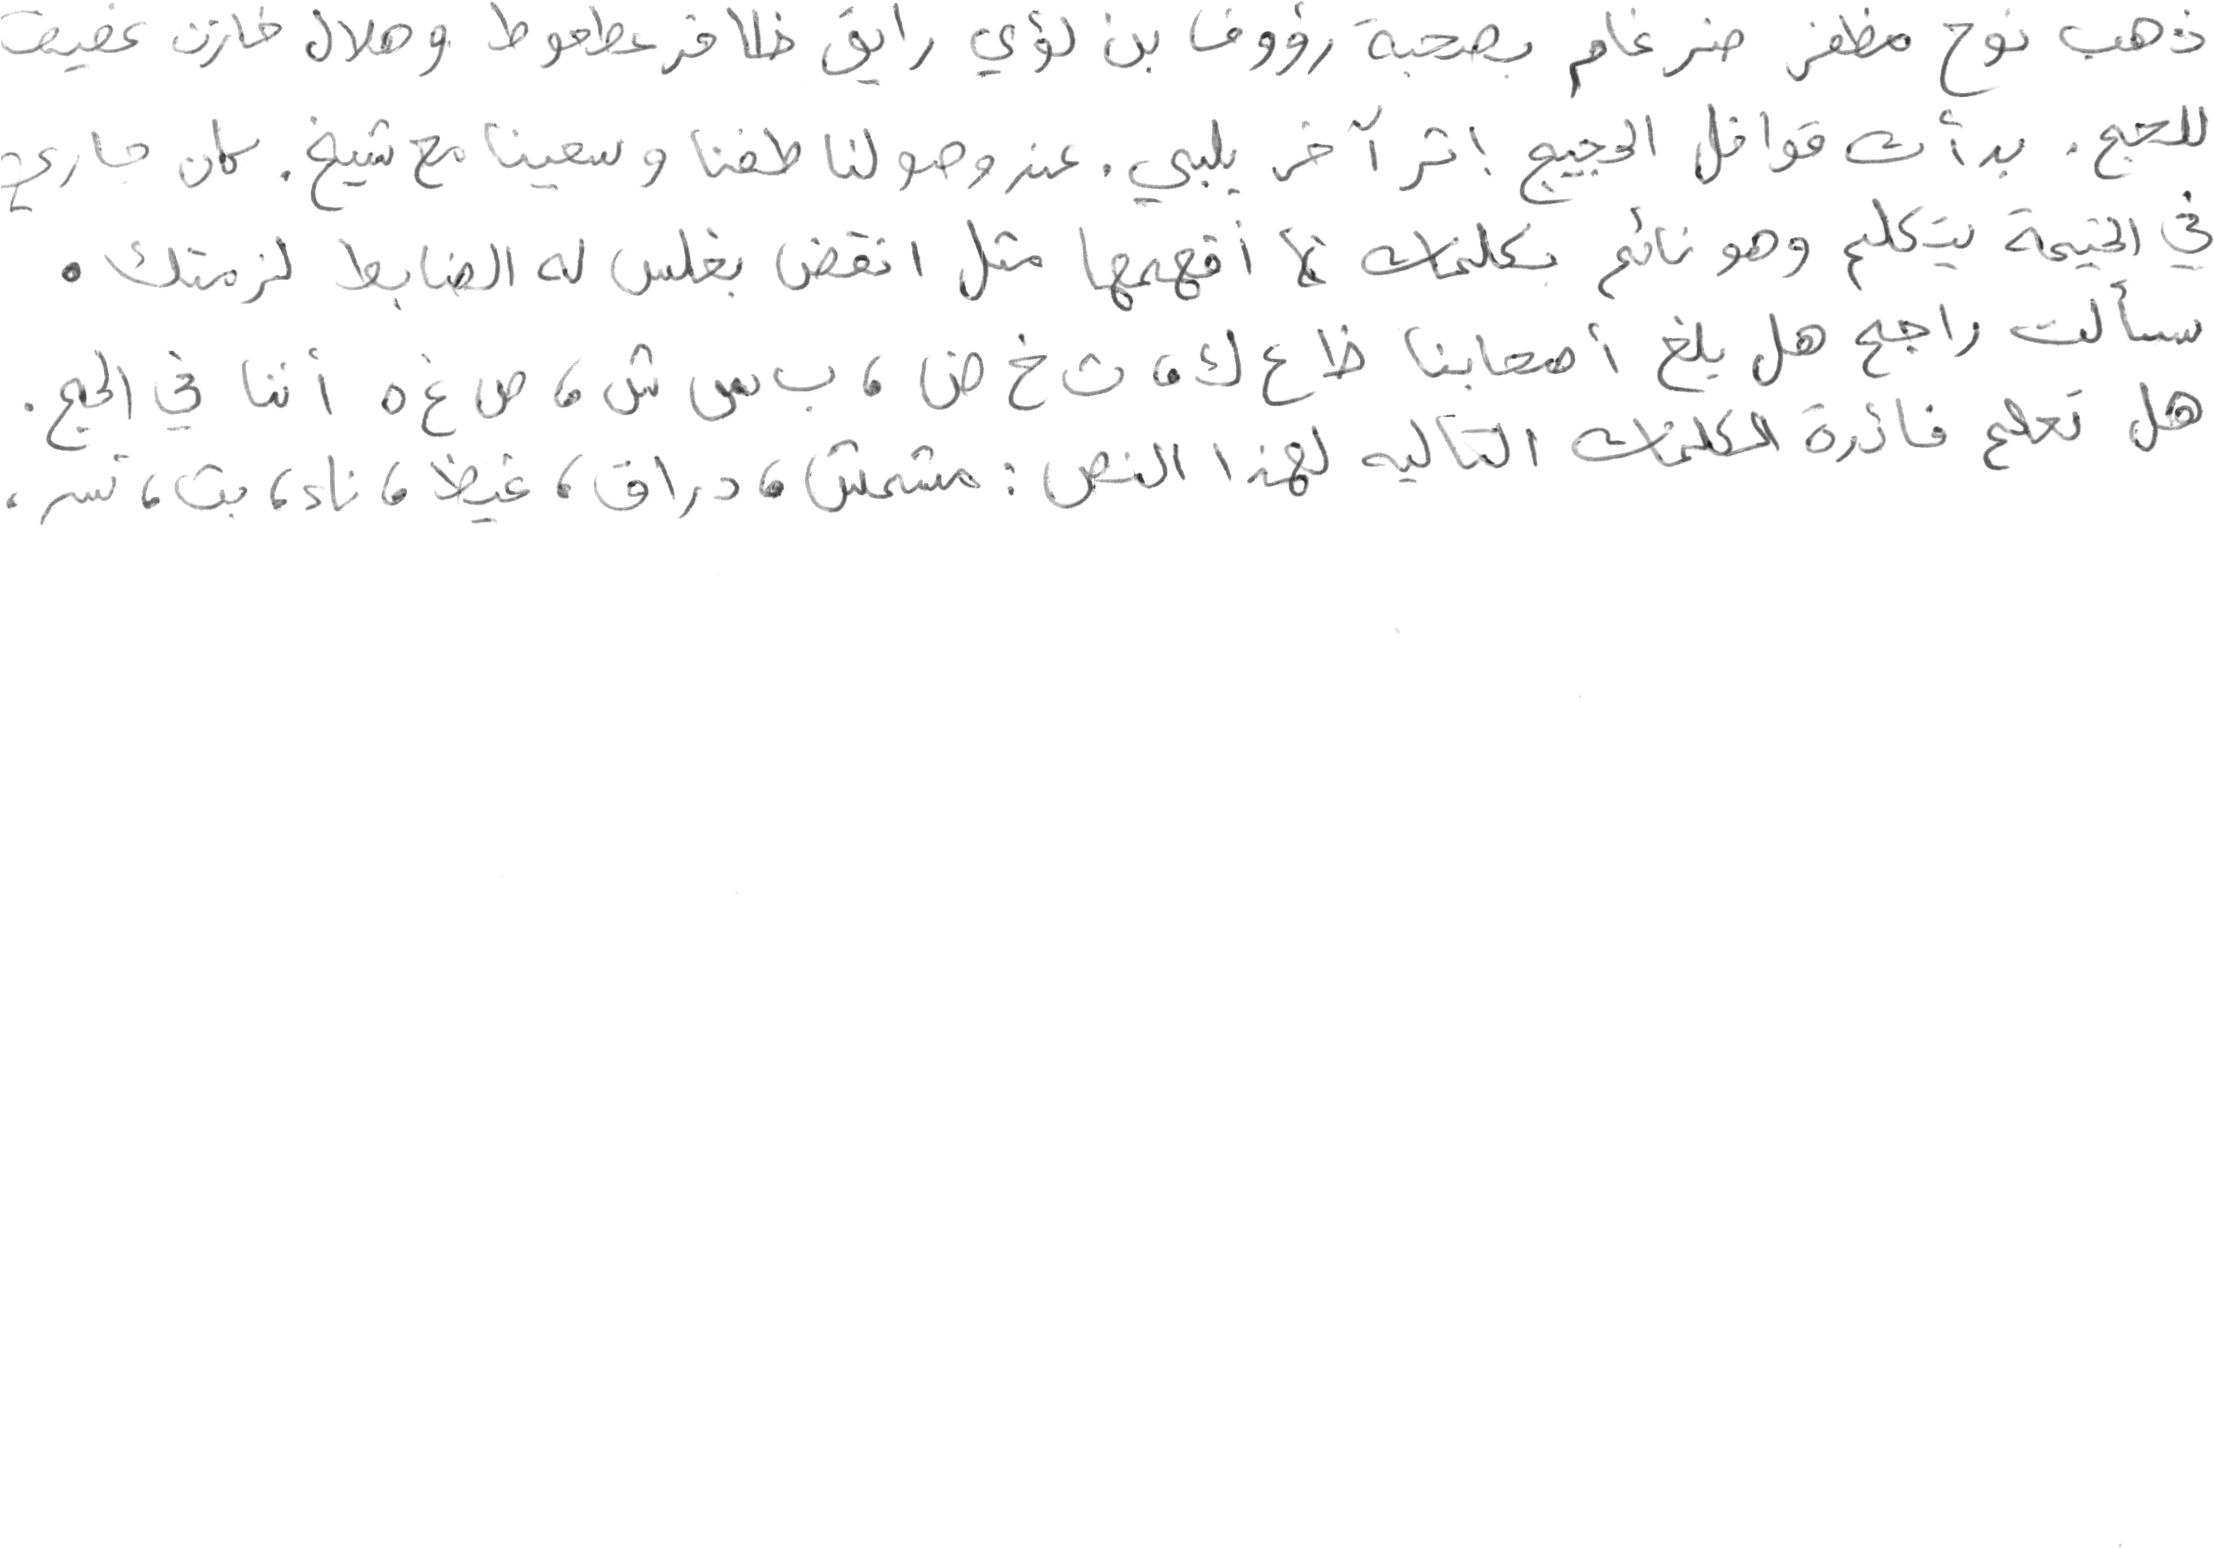 ذهب نوح مظفر ضرغام بصحبة رؤوف بن لؤي رايق ظافر عطعوط وهلال خازن عفيف
للحج. بدأت قوافل الحجيج إثر آخر يلبي. عند وصولنا طفنا وسعينا مع شيخ. كان جاري
في الخيمة يتكلم وهو نائم بكلمات لم أفهمها مثل انقض بغلس له الضابط لزمتك.
سألت راجح هل بلغ أصحابنا ظ ع ك، ث خ ض، ب س ش، ص غ ه أننا في الحج.
هل تعلم فائدة الكلمات التاليه لهذا النص: مشمش، دراق، غيظ، ناء، بت، تسر،